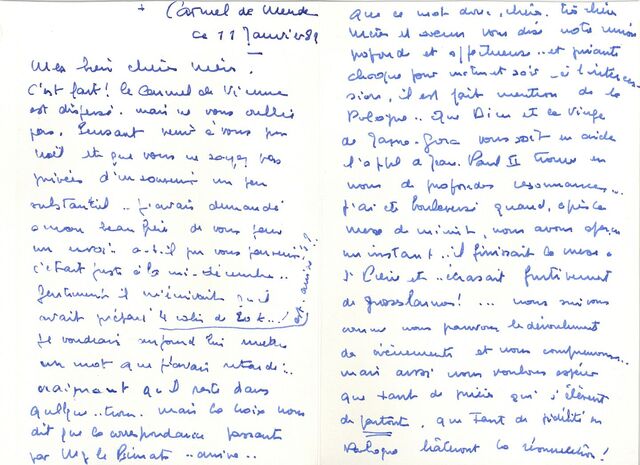 + Carmel de Mende
ce 11 Janvier 82
Mes bien chères Mères,
C'est fait! le Carmel de Vienne
est dispersé. mais ne vous oublie
pas. Pensant venir à vous pour
Noël et que vous ne soyez pas
privées d'un souvenir un peu
substantiel.. j'avais demandé
à mon beau frère de vous faire
un envoi.. a-t-il pu vous parvenir?
c'était juste à la mi-décembre..
Gentiment il m'écrivait qu'il
avait préparé 1 colis de 20 K..!
est. arrivé??
Je voudrais aujourd'hui mettre
un mot que j'avais retardé..
craignant qu'il reste dans
quelque.. trou. mais la voix nous
dit que la correspondance passant
par Mgr le Primat.. arrive..
Que ce mot donc, chère, très chère
Mère et sœurs vous dise notre union
profonde et affectueuse.. et priante
chaque jour matin et soir à l'interces-
sion, il est fait mention de la
Pologne.. Que Dieu et la Vierge
de Jasna-Gora vous soit en aide
l'appel à Jean. Paul II trouve en
nous de profondes résonnances..
j'ai été bouleversée quand, après la
messe de minuit, nous avons aperçu
un instant.. il finissait la messe
et.. écrasait furtivement
de grosses larmes!... nous suivons
comme nous pouvons le déroulement
des évènements et nous comprenons..
mais aussi nous voulons espérer
que tant de prières qui s'élèvent
de partout, que tant de fidélité en
Pologne hâteront la résurrection!